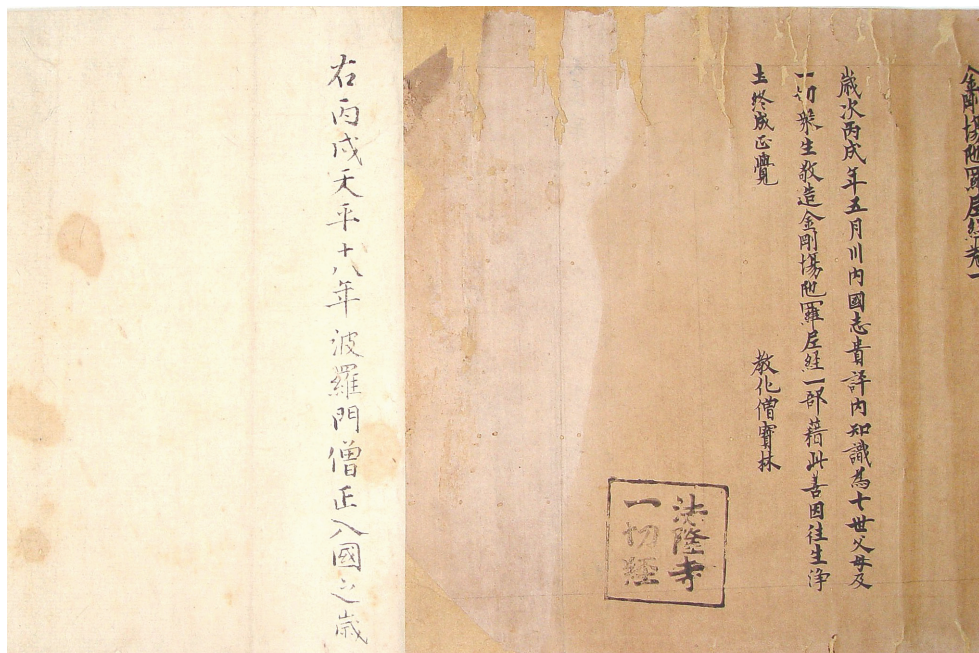 金剛場陁羅尼経卷一
歳次丙戌年五月川内國志貴評内知識為七世父母及
一切衆生敬造金剛場陁羅尼経一部藉此善因往生浄
土終成正覺
教化僧寶林
法隆寺
一切經
右丙戌天平十八年波羅門僧正入國之歳